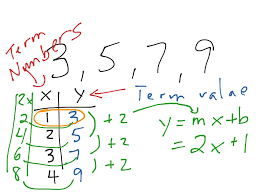 Term
Numbers
3, 5, 7, 9
2x X Y
Term value
2 1 3
+2
4 2 5
+2
6 3 7
+2
8 4 9
y = mx+b
= 2x+1